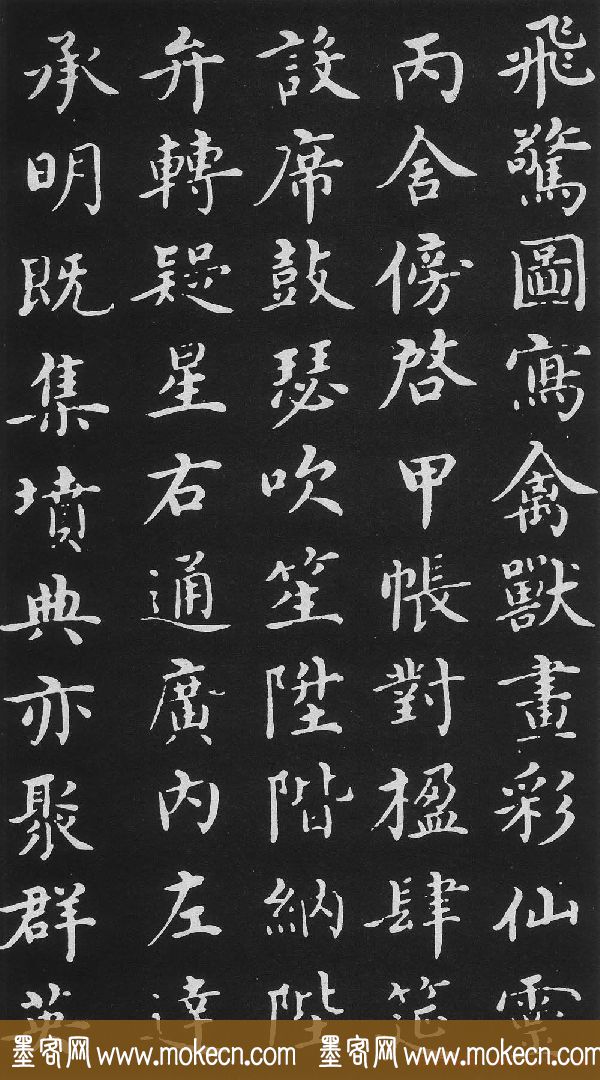 飛驚圖寫禽獸畫彩仙靈
丙舍傍啓甲帳對楹肆筵
設席鼓瑟吹笙陞階納陛
弁轉疑星右通廣內左達
承明既集墳典亦聚群英
墨客网 www.mokecn.com 墨客网 www.mokecn.com